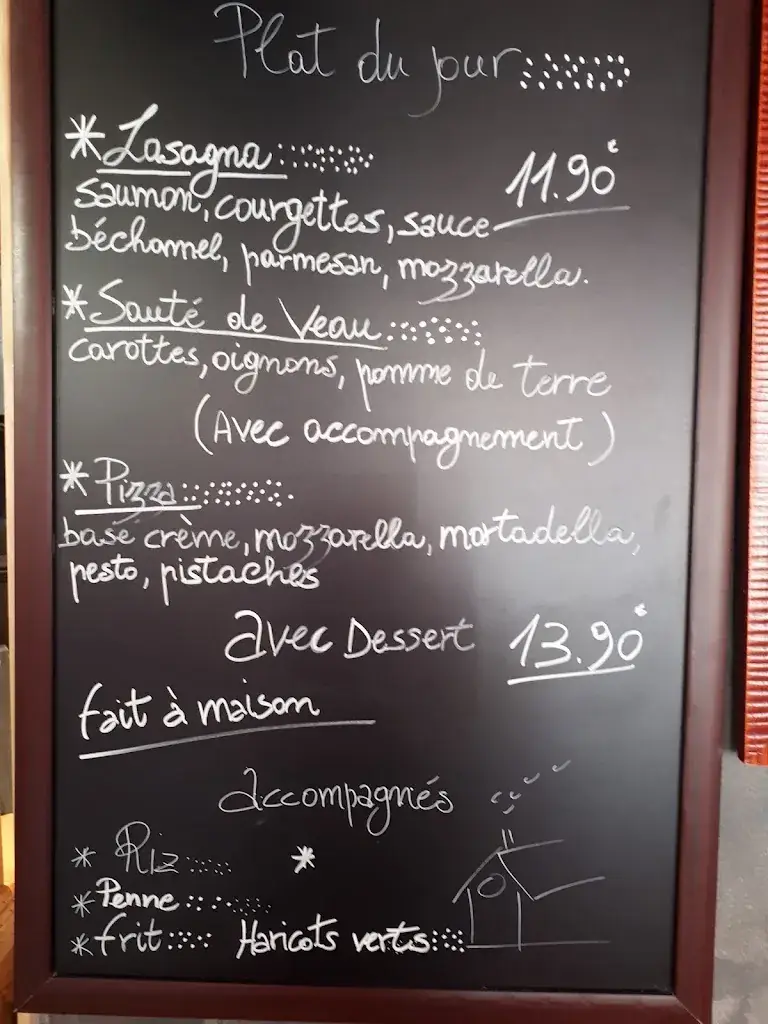 Plat du jour
*Lasagna 11.90€
saumon, courgettes, sauce
béchammel, parmesan, mozzarella.
*Sauté de Veau
carottes, oignons, pomme de terre
(Avec accompagnement)
*Pizza
base crème, mozzarella, mortadella,
pesto, pistaches
avec Dessert 13.90€
fait à maison
accompagnés
* Riz *
* Penne
* frit Haricots verts